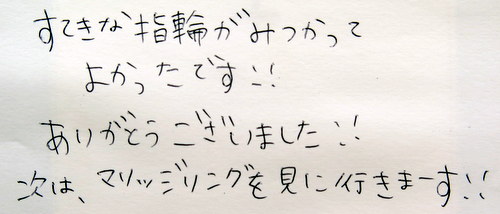 すてきな指輪がみつかって
よかったです!!
ありがとうございました!!
次は、マリッジリングを見に行きまーす!!